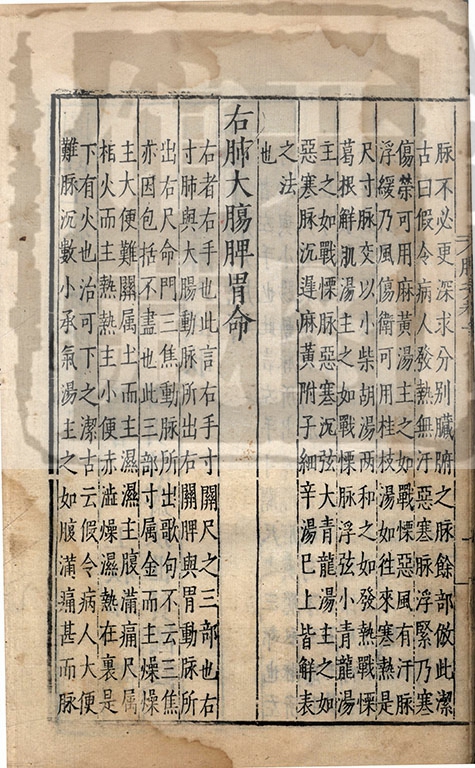 脉不必更深求分別臟腑之脉餘部倣此潔
古曰假令病人發熱無汗惡寒脉浮緊乃寒
傷榮可用麻黃湯主之如戰慄惡風有汗脉
浮緩乃風傷衛可用桂枝湯如徃來寒熱是
尺寸脉交以小柴胡湯兩和之如發熱戰慄
葛根解肌湯主之如戰慄脉浮弦小青龍湯
主之如戰慄脉惡寒沉弦大青龍湯主之如
惡寒脉沉遲麻黃附子細辛湯已上皆解表
之法
也
右肺大腸脾胃命
右者右手也此言右手寸關尺之三部也右
寸肺與大腸動脉所出右關脾與胃動脉所
出右尺命門三焦動脉所出歌句不云三焦
亦因包括不盡也此三部寸属金而主燥燥
主大便難關属土而主濕濕主腹滿痛尺属
相火而主熱熱主小便赤澁燥濕熱在裏是
下有火也治可下之潔古云假令病人大便
難脉沉數小承氣湯主之如腹滿痛甚而脉